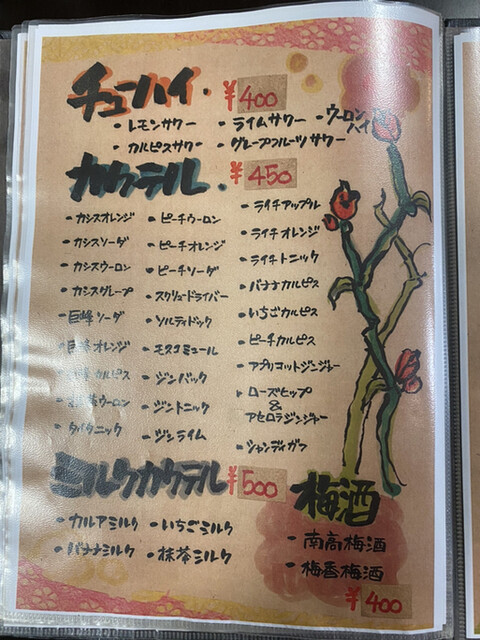 チューハイ. ¥400
・レモンサワー ・ライムサワー ・ウーロンハイ
・カルピスサワー ・グレープフルーツサワー
カクテル. ¥450
・カシスオレンジ
・カシスソーダ
・カシスウーロン
・カシスグレープ
・巨峰ソーダ
・巨峰オレンジ
カルピス
ウーロン
ニック
・ピーチウーロン
・ピーチオレンジ
・ピーチソーダ
・スクリュードライバー
・ソルティドック
・モスコミュール
・ジンバック
・ジントニック
・ジンライム
・ライチアップル
・ライチオレンジ
・ライチトニック
・バナナカルピス
・いちごカルピス
・ピーチカルピス
・アプリコットジンジャー
・ローズヒップ
&
アセロラジンジャー
・シャンディガフ
ミルクカクテル ¥500
・カルアミルク ・いちごミルク
・バナナミルク ・抹茶ミルク
梅酒
・南高梅酒
・梅香梅酒
¥400